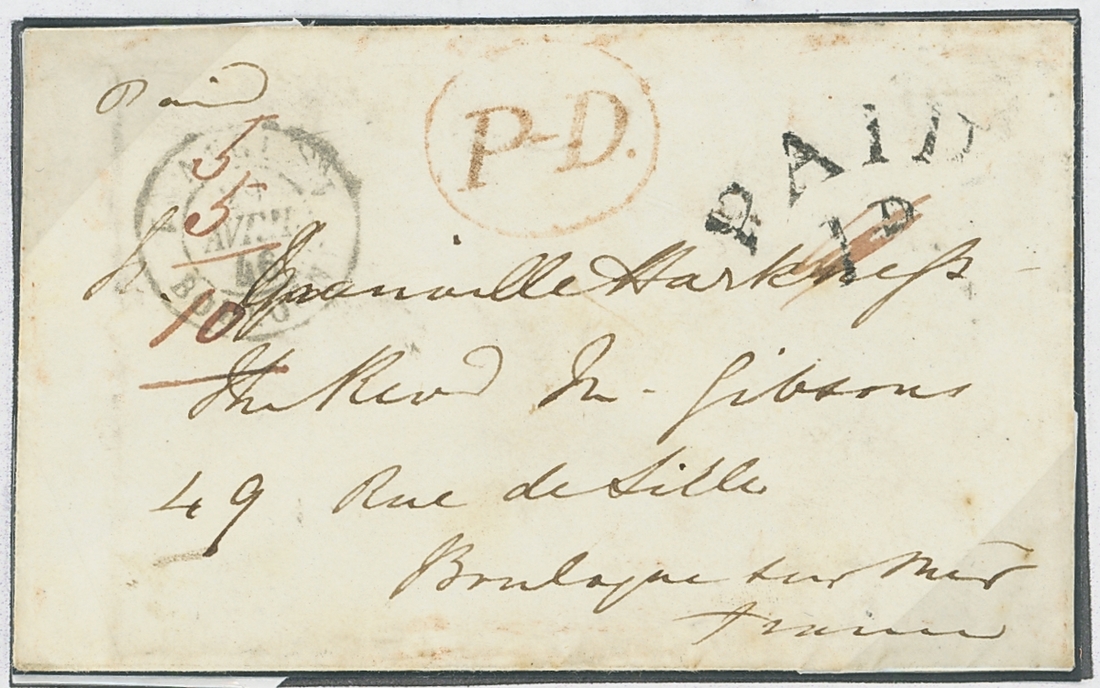 Paid
P-D.
PAID
1D
5
5
10
AVRIL
46
BOULOGNE
Granville Harkness
The Revd Mr Gibsons
49 Rue de Lille
Boulogne sur Mer
France